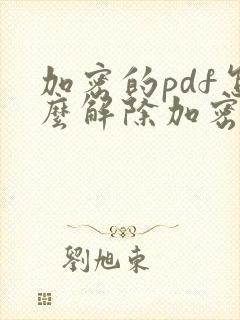 加密的pdf怎
麼解除加密
劉旭東